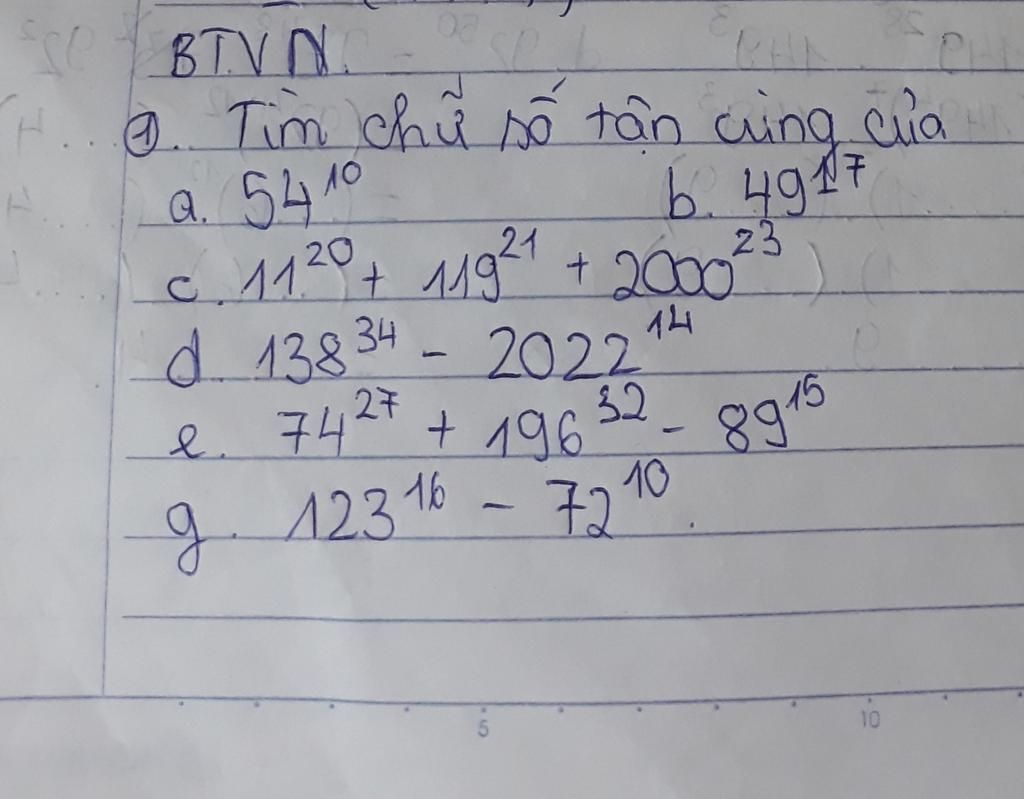 BTVN.
①. Tìm chữ số tận cùng của
a. 54¹⁰ b. 49¹⁷
c. 11²⁰ + 119²¹ + 2000²³
d. 138³⁴ - 2022¹⁴
e. 74²⁷ + 196³² - 89¹⁵
g. 123¹⁶ - 72¹⁰.
5 10